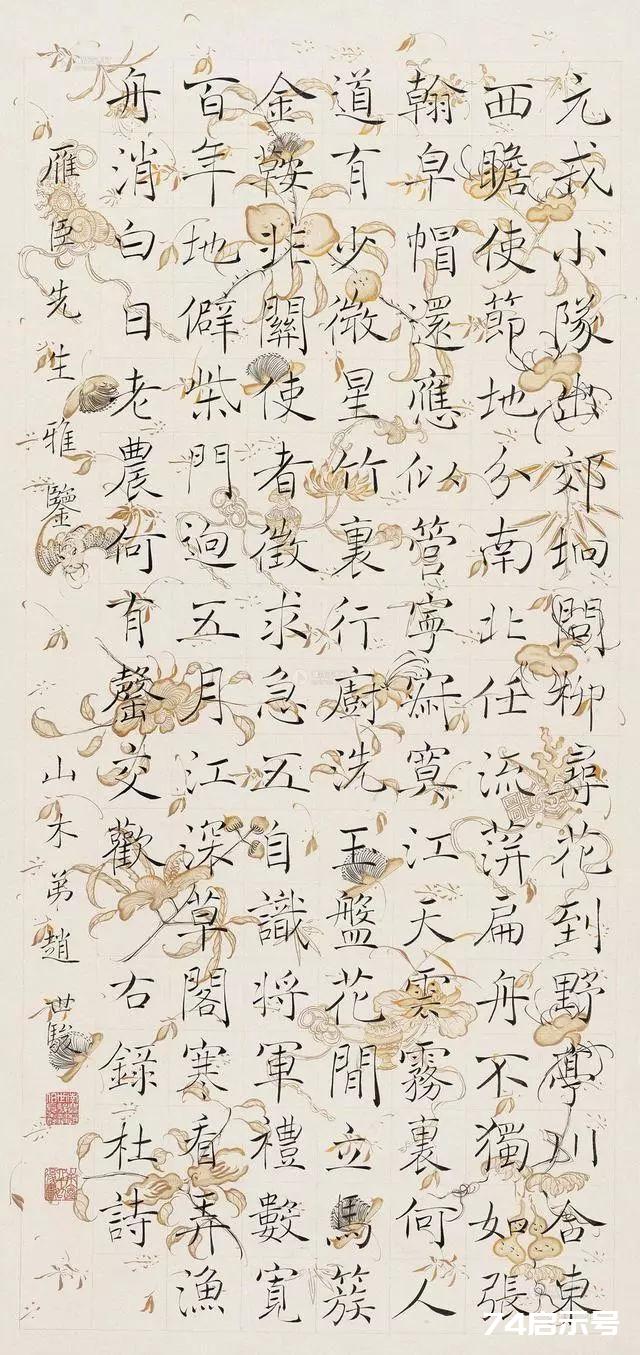 元戎小隊出郊坰問柳尋花到野亭川合東
西瞻使節地分南北任流萍扁舟不獨如張
翰皁帽還應似管寧寂寞江天雲霧裏何人
道有少微星竹裏行廚洗玉盤花間立馬簇
金鞍非關使者徵求急五自識將軍禮數寬
百年地僻柴門迥五月江深草閣寒看弄漁
舟消白日老農何有罄交歡右錄杜詩
雁臣先生雅鑒 山木弟趙世駿
74启示号